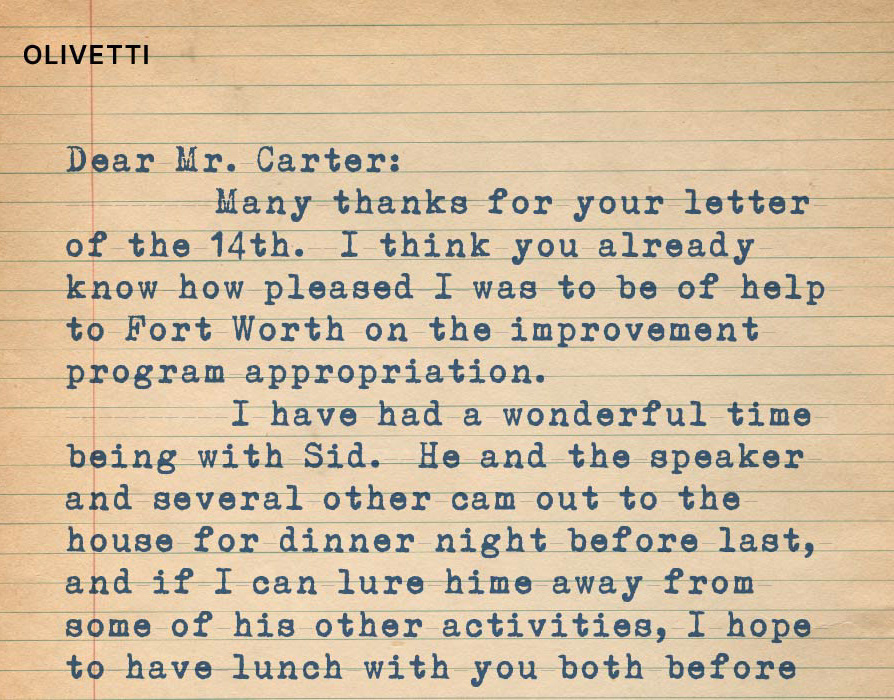 OLIVETTI
Dear Mr. Carter:
Many thanks for your letter
of the 14th. I think you already
know how pleased I was to be of help
to Fort Worth on the improvement
program appropriation.
I have had a wonderful time
being with Sid. He and the speaker
and several other cam out to the
house for dinner night before last,
and if I can lure hime away from
some of his other activities, I hope
to have lunch with you both before